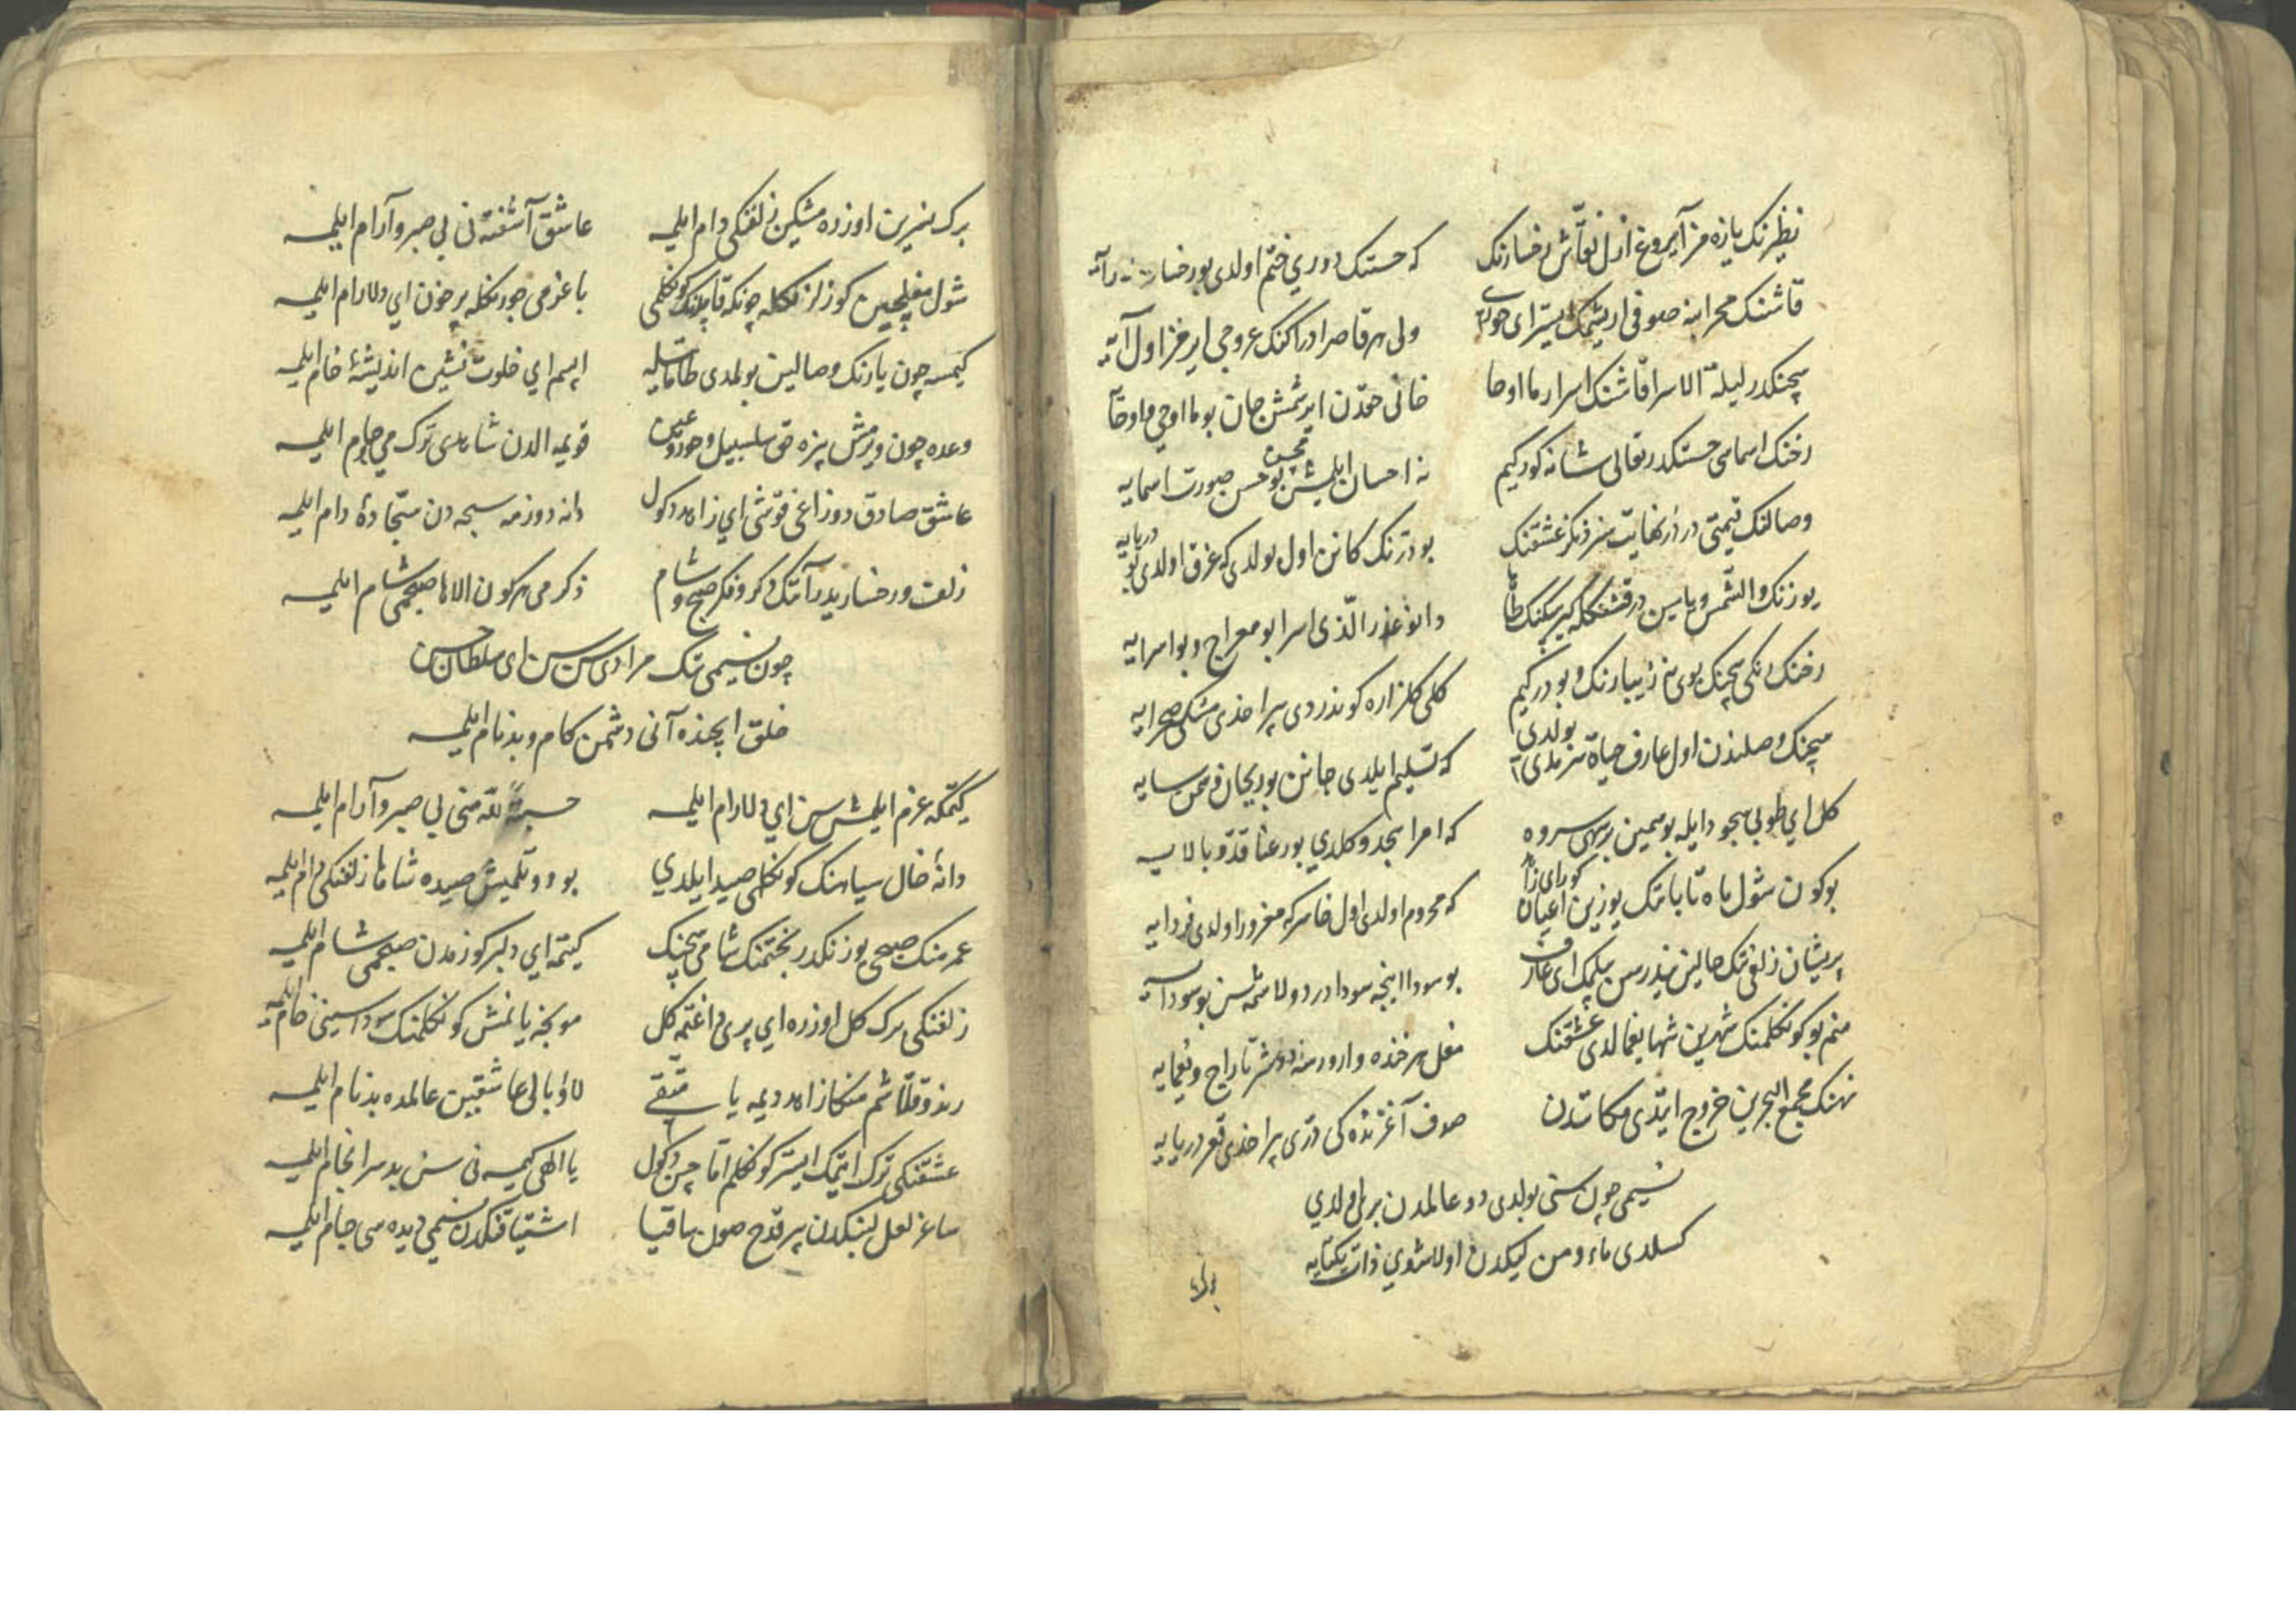 نظیرنک یازه مز آیروغ ازل نقاش رخسارنک که حسنک دوری ختم اولدی بو رخسار
قاشنک محرابنه صوفی اریشمک ایستر ای ولی هر قاصر ادراکنک عروجی ایرمز اول
سچنکدر لیلة الاسرا قاشنک اسرار ما اوحا خانی حقدن ایرشمش جان بو ما اوحی و ما
رخنک اسمامی حسنکدر تعالی شانه کورکیم نه احسان ایلمش بو حسن صورت اسمایه
وصالنک قیمتی در در نهایت سز دنکز عشقنک بو درنک کانن اول بولدی که غرق اولدی بو دریایه
یوزنک والشمس و یاسین در قشنکله کیرپیکنک طه الذی اسرا بو معراج و بو اسرایه
رخنک رنکی سچنک بوی نه زیبا رنک و بو در کیم کلی کلزاره کوندردی براخدی مشکی صحرایه
سچنک وصلندن اول عارف حیاة سرمدی بولدی که تسلیم ایلدی جانن بو ریحان سمن سایه
کل ای طوبی سجود ایله بو سمین بر سهی سروه که امر اسجدو کلدی بو رعنا قد و بالایه
بوکون شول ماه تابانک یوزین اعیان کور ای زاهد که محروم اولدی اول خاسر که مغرور اولدی فردایه
پریشان زلفی نک حالین نیدرسن بیلمک ای عارف بو سودا اینجه سودادر دولاشمه سن بو سودایه
منم بو کونکلمنک شهرین شها یغما لدی عشقنک مغل هر خنده وارورسه دوشر تاراج و یغمایه
نهنک مجمع البحرین خروج ایتدی مکاندن صدف آغزنده کی دری براخدی قعر دریایه
نسیمی چون سنی بولدی دو عالمدن بری اولدی
کسلدی ما و من لیکدن اولاشدی ذات یکتایه
برک نسرین اوزره مشکین زلفنکی دام ایلمه عاشق آشفته نی بی صبر و آرام ایلمه
شول مغلچین کوزلرنکله چونکه قاپدنک کونکلمی باغرمی جورنکله پر خون ای دلارام ایلمه
کیمسه چون یارنک وصالین بولمدی طامات ایله اپسم ای خلوت نشین اندیشهٔ خام ایلمه
وعده چون ویرمش بزه حق سلسبیل و حور و عین قویمه الدن شاهدی ترک می و جام ایلمه
عاشق صادق دوزاغی قوشی ای زاهد دکول دانه دوزمه سبحه دن سجادهٔ دام ایلمه
زلف و رخساریدر آنک ذکر و فکر صبح و شام ذکرمی هر کون الاها صبحمی شام ایلمه
چون نسیمی نک مرادی سن سن ای سلطان حسن
خلق ایچنده آنی دشمن کام و بدنام ایلمه
کیتمکه عزم ایلمش سن ای دلارام ایلمه حسبة لله منی بی صبر و آرام ایلمه
دانهٔ خال سیاهنک کونکلمی صید ایلدی بو دوتلمیش صیده شاها زلفنکی دام ایلمه
عمرمنک صبحی یوزنکدر بختمنک شامی سچنک کیتمه ای دلبر کوزمدن صبحمی شام ایلمه
زلفنکی برک کل اوزره ای پری داغتمه کل مونجه یانمش کونکلمنک سوداسینی خام ایلمه
رند و قلاشم منکا زاهد دیمه یا متقی لاؤبالی عاشقین عالمده بدنام ایلمه
عشقنکی ترک ایتمک ایستر کونکلم اما چن دکول یا الهی کیمسه نی سن بد سرانجام ایلمه
ساغر لعل لبنکدن بر قدح صون ساقیا اشتیاقنکدن نسیمی دیده سی جام ایلمه
برک